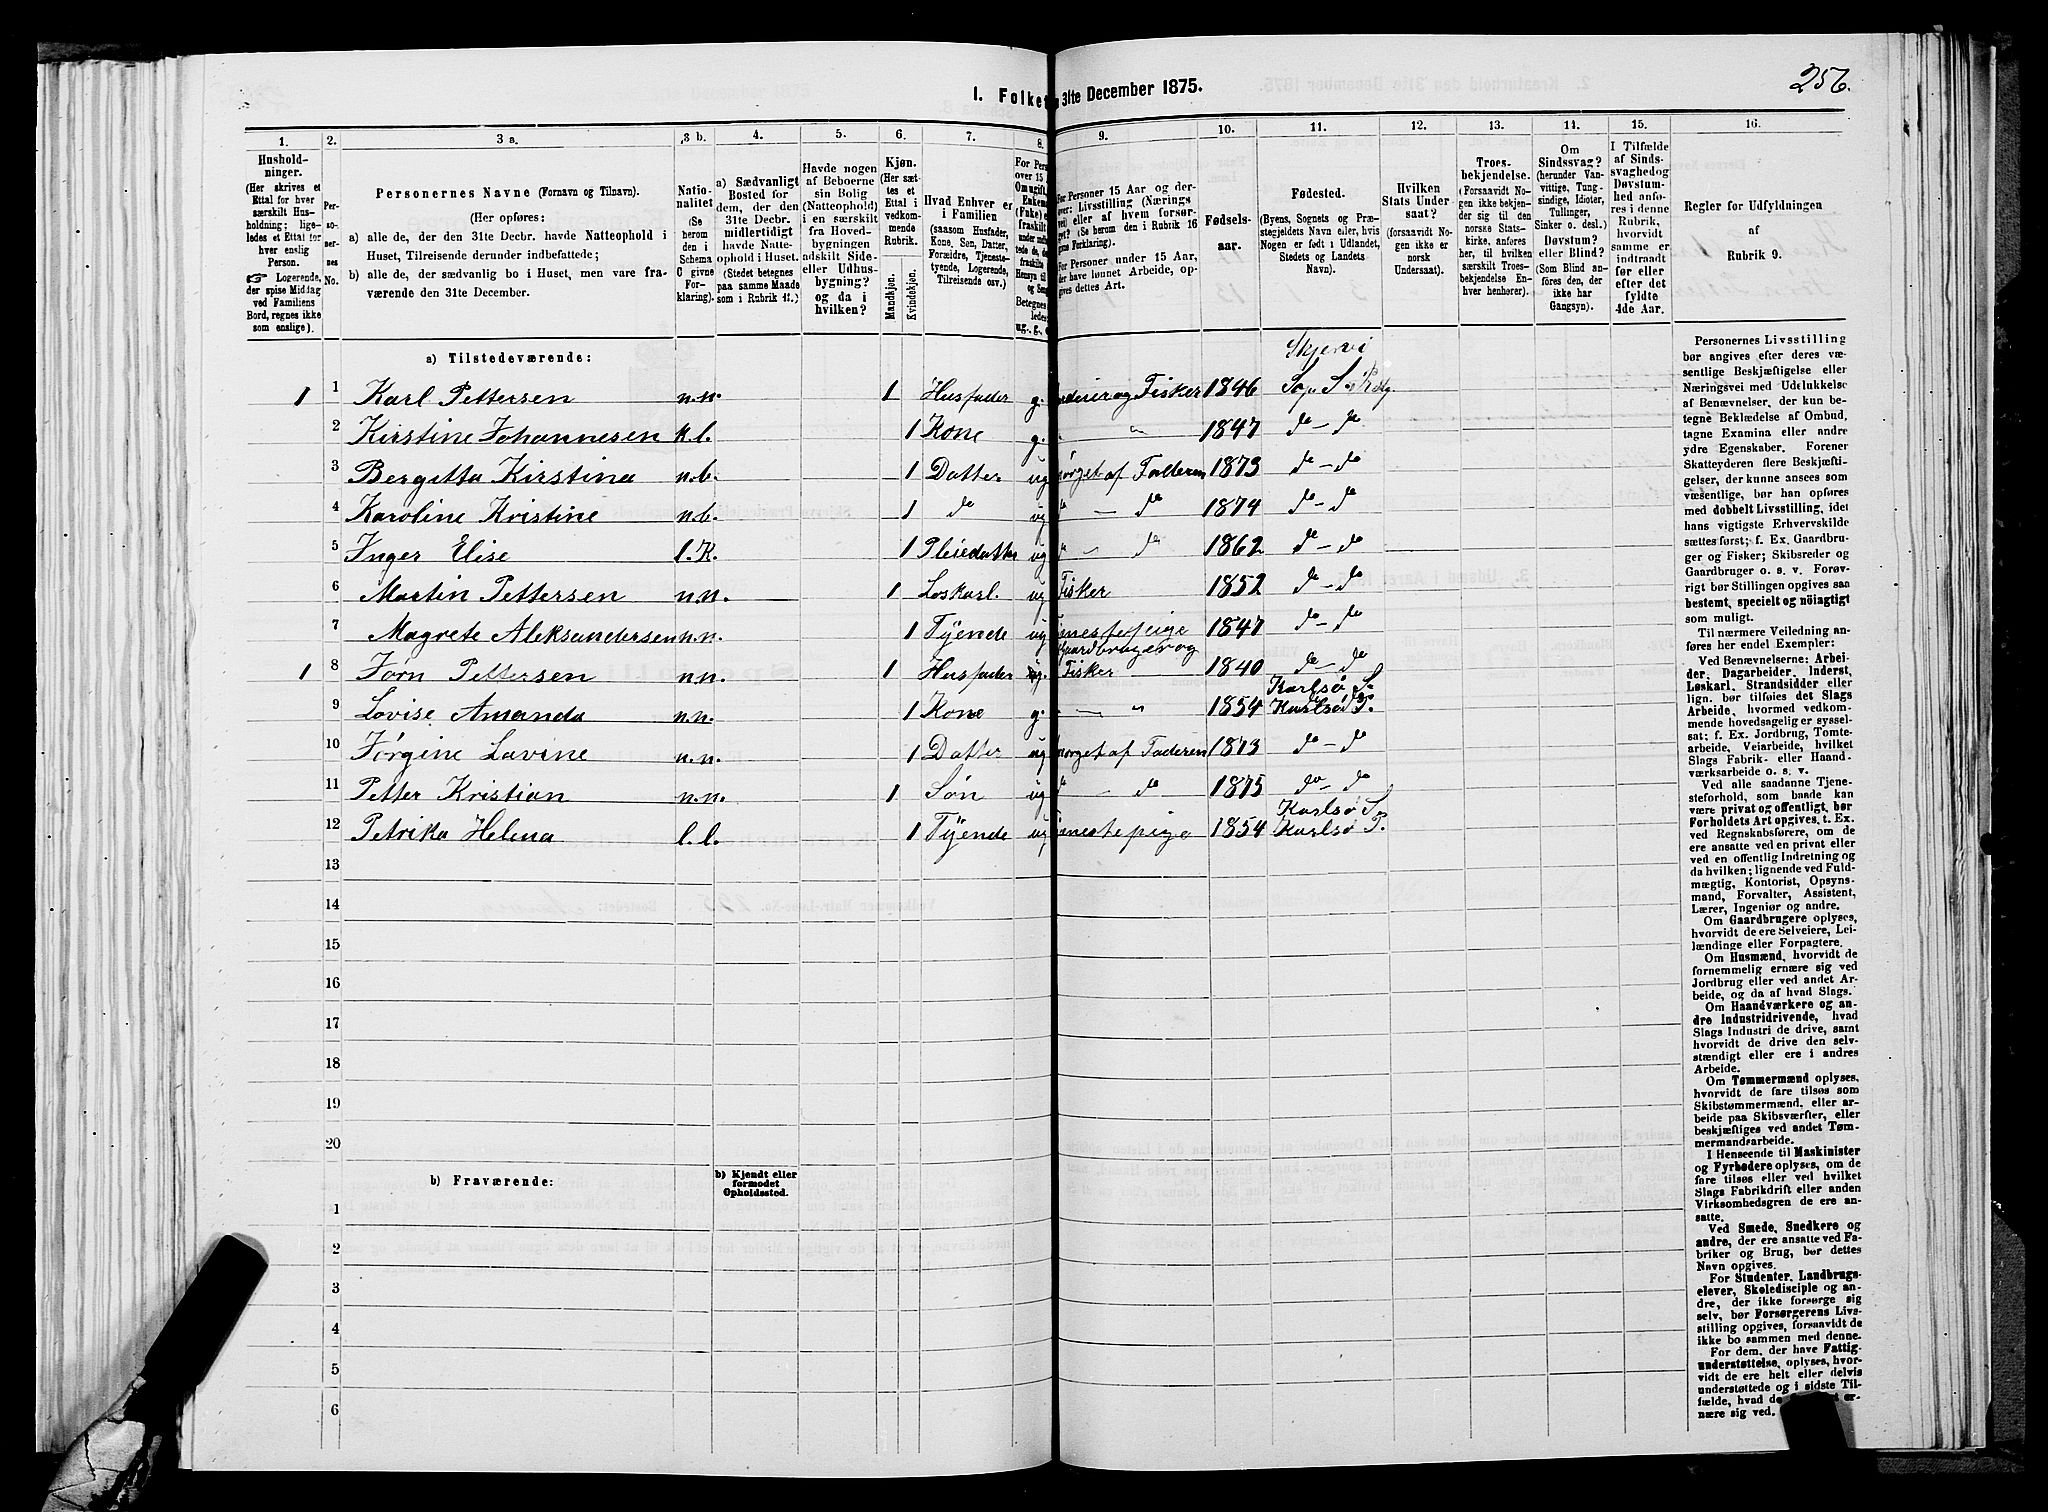 256.
I. Folket
31te December 1875.
1. 2. 3 a. 3 b. 4. 5. 6. 7. 8. 9. 10. 11. 12. 13. 14. 15. 16.
Hushold-
ninger.
(Her skrives et
Ettal for hver
særskilt Hus-
holdning; lige-
ledes et Ettal for
hver enslig
Person.
☞ Logerende,
der spise Middag
ved Familiens
Bord, regnes ikke
som enslige).
Per-
so-
ner-
nes
No.
Personernes Navne (Fornavn og Tilnavn).
(Her opføres:
a) alle de, der den 31te Decbr. havde Natteophold i
Huset, Tilreisende derunder indbefattede;
b) alle de, der sædvanlig bo i Huset, men vare fra-
værende den 31te December.
Natio-
nalitet
(Se
herom
den i
Schema
C givne
For-
klaring).
a) Sædvanligt
Bosted for
dem, der den
31te Decbr.
midlertidigt
havde Natte-
ophold i Huset.
(Stedet betegnes
paa samme Maade
som i Rubrik 11.)
Havde nogen
af Beboerne
sin Bolig
(Natteophold)
i en særskilt
fra Hoved-
bygningen
adskilt Side-
eller Udhus-
bygning?
og da i
hvilken?
Kjøn.
(Her sæt-
tes et
Ettal i
vedkom-
mende
Rubrik.
Mandkjøn.
Kvindekjøn.
Hvad Enhver er
i Familien
(saasom Husfader,
Kone, Søn, Datter,
Forældre, Tjeneste-
tyende, Logerende,
Tilreisende osv.)
For Pers
over 15
Om ugift,
Enkema
(Enke) e
fraskilt
For Personer 15 Aar og der-
over: Livsstilling (Nærings
vei) eller af hvem forsør-
get? (Se herom den i Rubrik 16
givne Forklaring).
For Personer under 15 Aar,
der have lønnet Arbeide, op-
gives dettes Art.
Fødsels-
aar.
Fødested.
(Byens, Sognets og Præ-
stegjeldets Navn eller, hvis
Nogen er født i Udlandet,
Stedets og Landets
Navn).
Hvilken
Stats Under
saat?
(forsaavidt No-
gen ikke er
norsk
Undersaat).
Troes-
bekjendelse.
(Forsaavidt No-
gen ikke bekjen-
der sig til den
norske Stats-
kirke, anføres
her, til hvilken
særskilt Troes-
bekjendelse En-
hver henhører).
Om
Sindssvag?
(herunder Van-
vittige, Tung-
sindige, Idioter,
Tullinger,
Sinker o. desl.)
Døvstum?
eller Blind?
(Som Blind an-
føres den, der
ikke har
Gangsyn).
I Tilfælde
af Sinds-
svaghed og
Døvstum-
hed anfø-
res i denne
Rubrik,
hvorvidt
samme er
indtraadt
før eller
efter det
fyldte
4de Aar.
Regler for Udfyldningen
af
Rubrik 9.
a) Tilstedeværende:
Skjervi
1 1 Karl Pettersen n.n. 1 Husfader g. og Fisker 1846
2 Kirstine Johannesen k.l. 1 Kone g. " 1847 do - do
3 Bergitta Kirstina n.b. 1 Datter ug.ørget af Faderen 1873 do - do
4 Karoline Kristine n.b. 1 do ug do - do 1874 do - do
5 Inger Elise l.K. 1 Pleiedatter ug do - do 1862 do - do
6 Martin Pettersen n.n. 1 Løskarl. ug Fisker 1852 do - do
7 Magrete Aleksandersen n.n. 1 Tyende ug nestepeige 1847 do - do
Gaardbruger og
1 8 Jørn Pettersen n.n. 1 Husfader g. Fisker 1840 do - do
Karlsø S.
9 Lovise Amanda n.n. 1 Kone g. - " 1854 Karlsø P.
10 Jørgine Lavine n.n. 1 Datter ug sørget af Faderen 1873 do - do
11 Petter Kristian n.n. 1 Søn ug do - do 1875 do - do
Karlsø S.
12 Petrika Helena l.l. 1 Tyende ug nestepige 1854 Karlsø P.
13
14
15
16
17
18
19
20
b) Fraværende:
b) Kjendt eller
formodet
Opholdssted.
1
2
3
4
5
6
Personernes Livsstilling
bør angives efter deres væ-
sentlige Beskjæftigelse eller
Næringsvei med Udelukkelse
af Benævnelser, der kun be-
tegne Beklædelse af Ombud,
tagne Examina eller andre
ydre Egenskaber. Forener
Skatteyderen flere Beskjæfti-
gelser, der kunne ansees som
væsentlige, bør han opføres
med dobbelt Livsstilling, idet
hans vigtigste Erhvervskilde
sættes først; f. Ex. Gaardbru-
ger og Fisker; Skibsreder og
Gaardbruger o. s. v. Forøv-
rigt bør Stillingen opgives saa
bestemt, specielt og nöiagtigt
som muligt.
Til nærmere Veiledning an-
føres her endel Exempler:
Ved Benævnelserne: Arbei-
der, Dagarbeider, Inderst,
Løskarl, Strandsidder eller
lign. bør tilføies det Slags
Arbeide, hvormed vedkom-
mende hovedsagelig er syssel-
sat; f. Ex. Jordbrug, Tomte-
arbeide, Veiarbeide, hvilket
Slags Fabrik- eller Haand-
værksarbeide o. s. v.
Ved alle saadanne Tjene-
steforhold, som baade kan
være privat og offentligt, bør
Forholdets Art opgives, t. Ex.
ved Regnskabsførere, om de
ere ansatte ved en privat eller
ved en offentlig Indretning og
da hvilken; lignende ved Fuld-
mægtig, Kontorist, Opsyns-
mand, Forvalter, Assistent,
Lærer, Ingeniør og andre.
Om Gaardbrugere oplyses,
hvorvidt de ere Selveiere, Lei-
lændinge eller Forpagtere.
Om Husmænd, hvorvidt de
fornemmelig ernære sig ved
Jordbrug eller ved andet Ar-
beide, og da af hvad Slags.
Om Haandværkere og an-
dre Industridrivende, hvad
Slags Industri de drive, samt
hvorvidt de drive den selv-
stændigt eller ere i andres
Arbeide.
Om Tømmermænd oplyses,
hvorvidt de fare tilsøs som
Skibstømmermænd, eller ar-
beide paa Skibsværfter, eller
beskjæftiges ved andet Tøm-
mermandsarbeide.
I Henseende til Maskinister
og Fyrbødere oplyses, om de
fare tilsøs eller ved hvilket
Slags Fabrikdrift eller anden
Virksomhedsgren de ere an-
satte.
Ved Smede, Snedkere og
andre, der ere ansatte ved Fa-
briker og Brug, bør dettes
Navn opgives.
For Studenter, Landbrugs-
elever, Skoledisciple og an-
dre, der ikke forsørge sig
selv, bør Forsørgerens Livs-
stilling opgives, forsaavidt de
ikke bo sammen med denne.
For dem, der have Fattig-
understøttelse, oplyses, hvor-
vidt de ere helt eller delvis
understøttede og i sidste Til-
fælde, hvad de er-
nære sig ved.